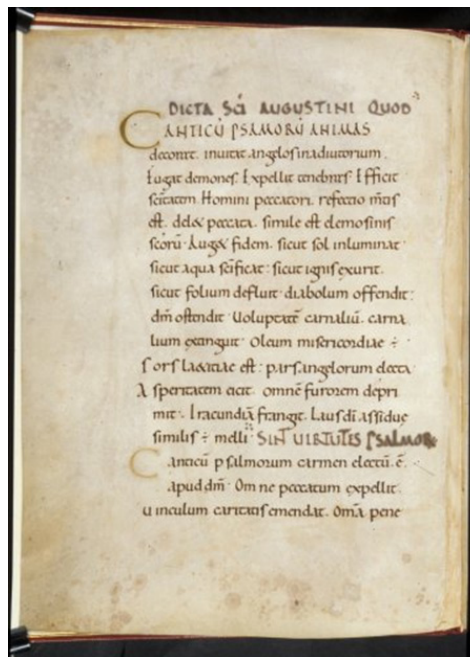 DICTA SCI AUGUSTINI QUOD
CANTICŪ PSAMORŪ ANIMAS
decorat. inuitat angelos inadiutorium.
Fugat demones. Expellit tenebras. Efficit
scitatem. Homini peccatori. refectio mtis
est. delet peccata. simile est elemosinis
scorū. Auget fidem. sicut sol inluminat.
sicut aqua scificat. sicut ignis exurit.
sicut folium defluit. diabolum offendit.
dm ostendit. Uoluptatē carnaliū. carna
lium extinguit. Oleum misericordiae ÷
Sors laetitiae est. pars angelorum electa
Asperitatem eicit. omnē furorem depri
mit. Iracundiā frangit. Laus di assidue
similis ÷ melli. SIN UIRTUTES PSALMOR
Canticū psalmorum carmen electū. ē.
apud dm. Omne peccatum expellit.
uinculum caritatis emendat. Omā pene